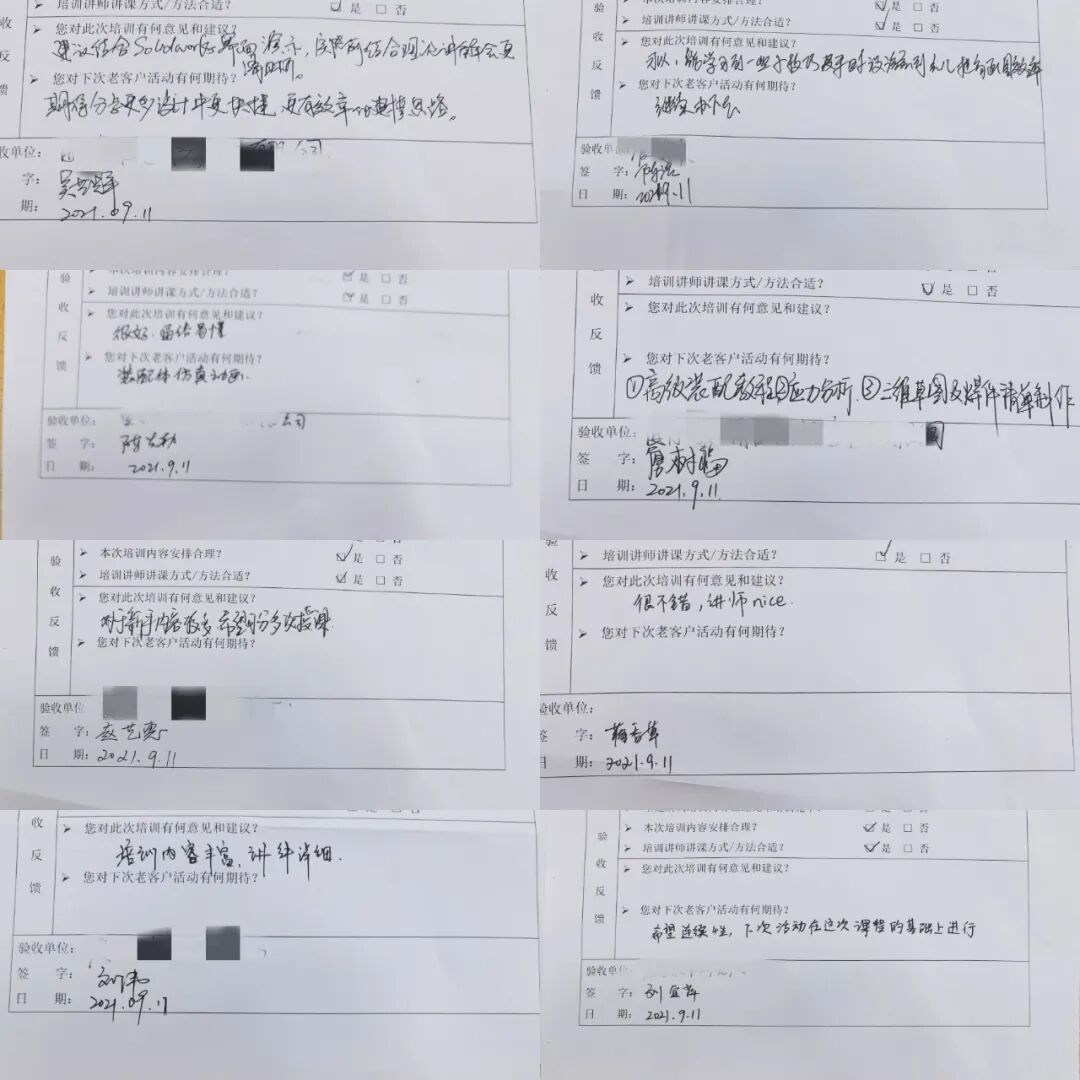 培训讲师讲课方式/方法合适? 是 否
收
反
馈
您对此次培训有何意见和建议?
建议结合Solidworks界面演示,
您对下次老客户活动有何期待?
期待分享更多设计中更快捷、更有效率的建模思路。
收单位: 公司
字:
期: 2021.09.11
验
收
反
馈
是 否
培训讲师讲课方式/方法合适? 是 否
您对此次培训有何意见和建议?
可以,能学习到一些
您对下次老客户活动有何期待?
验收单位:
签 字:
日 期:
验
收
反
馈
本次培训内容安排合理? 是 否
培训讲师讲课方式/方法合适? 是 否
您对此次培训有何意见和建议?
很好,通俗易懂
您对下次老客户活动有何期待?
装配体仿真动画.
验收单位: 公司
签 字:
日 期: 2021.9.11
收
反
馈
培训讲师讲课方式/方法合适? 是 否
您对此次培训有何意见和建议?
您对下次老客户活动有何期待?
①高级装配教程②应力分析.③二维草图及焊件清单制作
验收单位: 司
签 字:
日 期: 2021.9.11.
验
收
反
馈
本次培训内容安排合理? 是 否
培训讲师讲课方式/方法合适? 是 否
您对此次培训有何意见和建议?
对于新手内容较多希望可分多次授课.
您对下次老客户活动有何期待?
验收单位
签 字: 赵艺惠
日 期: 2021.9.11
验
收
反
馈
培训讲师讲课方式/方法合适? 是 否
您对此次培训有何意见和建议?
很不错,讲师nice.
您对下次老客户活动有何期待?
验收单位:
签 字:
日 期: 2021.9.11
收
反
馈
您对此次培训有何意见和建议?
培训内容丰富,讲解详细.
您对下次老客户活动有何期待?
验收单位:
签 字: 刘伟
日 期: 2021.09.11
验
收
反
馈
本次培训内容安排合理? 是 否
培训讲师讲课方式/方法合适? 是 否
您对此次培训有何意见和建议?
您对下次老客户活动有何期待?
希望连续性,下次活动在这次课程的基础上进行
验收单位:
签 字:
日 期: 2021.9.11